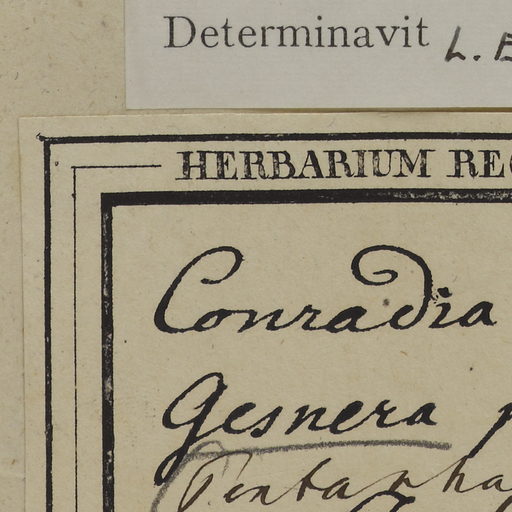 Determinavit L.
HERBARIUM REG
Conradia
Gesnera